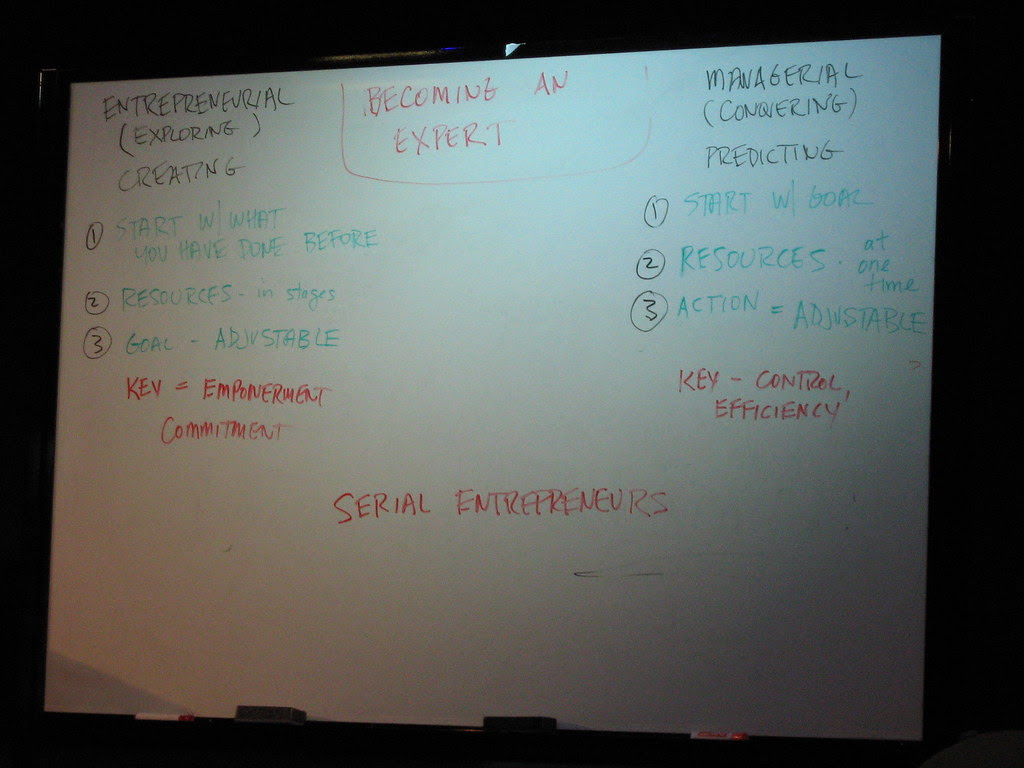 ENTREPRENEURIAL
(EXPLORING)
CREATING
① START W/ WHAT
YOU HAVE DONE BEFORE
② RESOURCES - in stages
③ GOAL - ADJUSTABLE
KEY = EMPOWERMENT
COMMITMENT
BECOMING AN
EXPERT
MANAGERIAL
(CONQUERING)
PREDICTING
① START W/ GOAL
② RESOURCES - at
one
time
③ ACTION = ADJUSTABLE
KEY - CONTROL,
EFFICIENCY
SERIAL ENTREPRENEURS